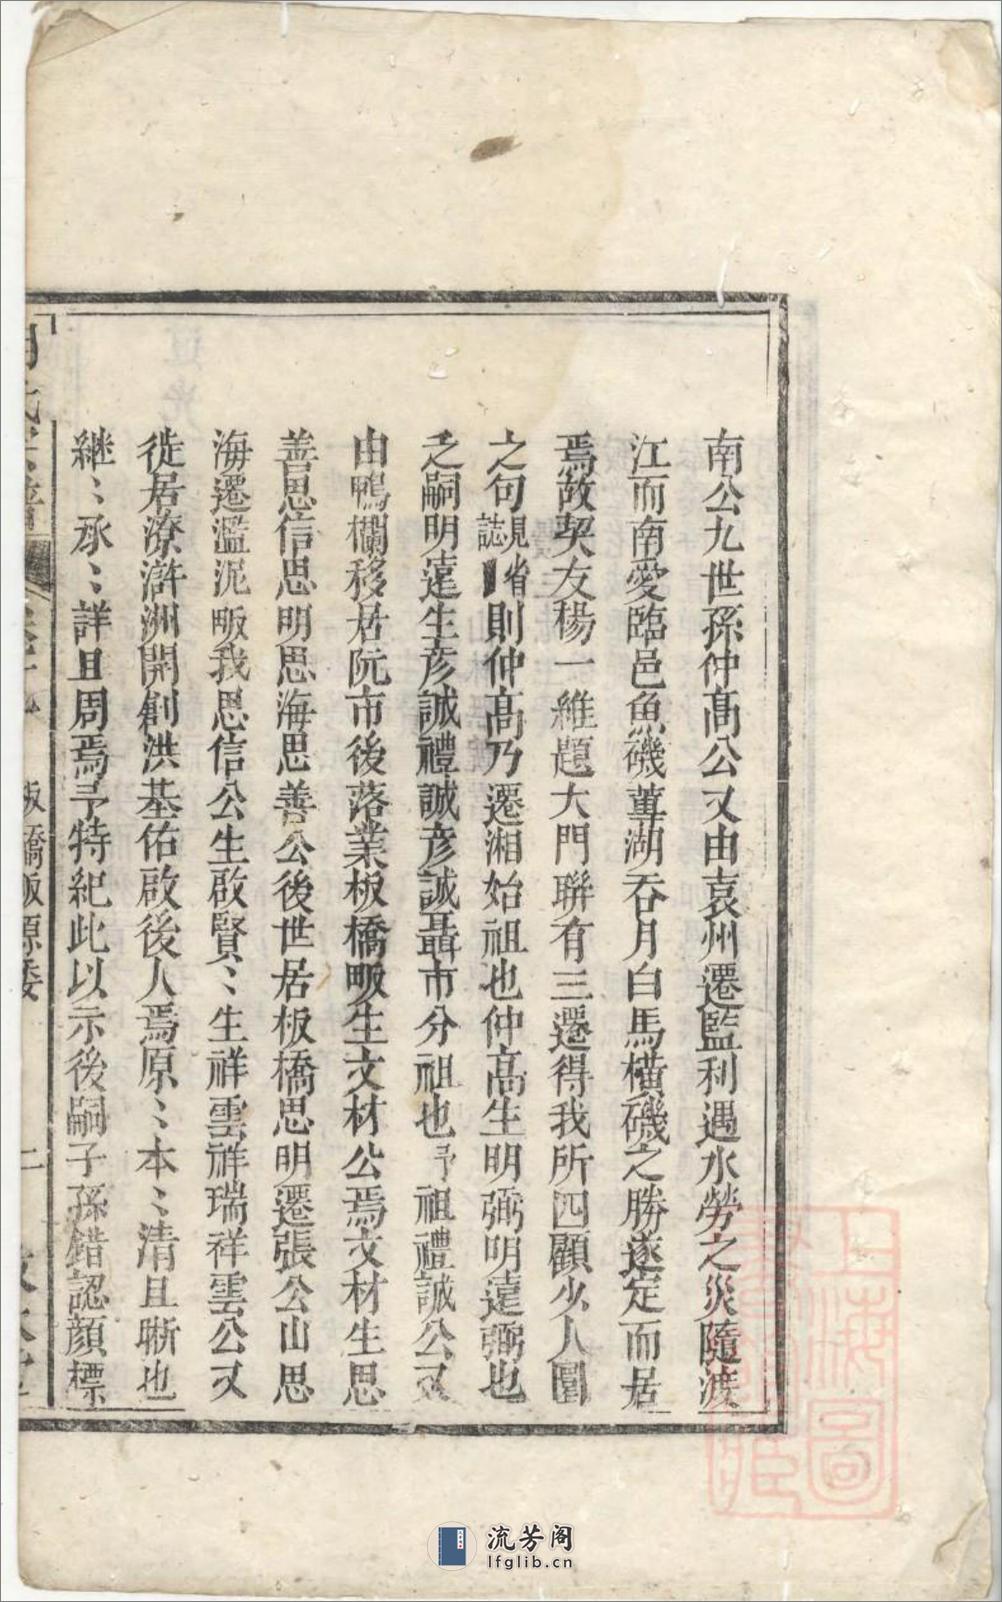 南公九世孫仲高公又由袁州遷監利遇水勞之災隨渡
江而南愛臨邑魚磯蓴湖吞月白馬橫磯之勝遂定而居
焉故契友楊一維題大門聯有三遷得我所四顧少人圍
之句見省誌則仲高乃遷湘始祖也仲高生明弼明遠弼也
之嗣明遠生彥誠禮誠彥誠聶市分祖也予祖禮誠公又
由鴨欄移居阮市後落業板橋畈生文材公焉文材生思
善思信思明思海思善公後世居板橋思明遷張公山思
海遷濫泥畈我思信公生啟賢〻生祥雲祥瑞祥雲公又
徙居潦滸洲開創洪基佑啟後人焉原〻本〻清且晰也
継〻承〻詳且周焉予特紀此以示後嗣子孫錯認顏標
板橋畈源委
二
上海圖
流芳阁
lfglib.cn